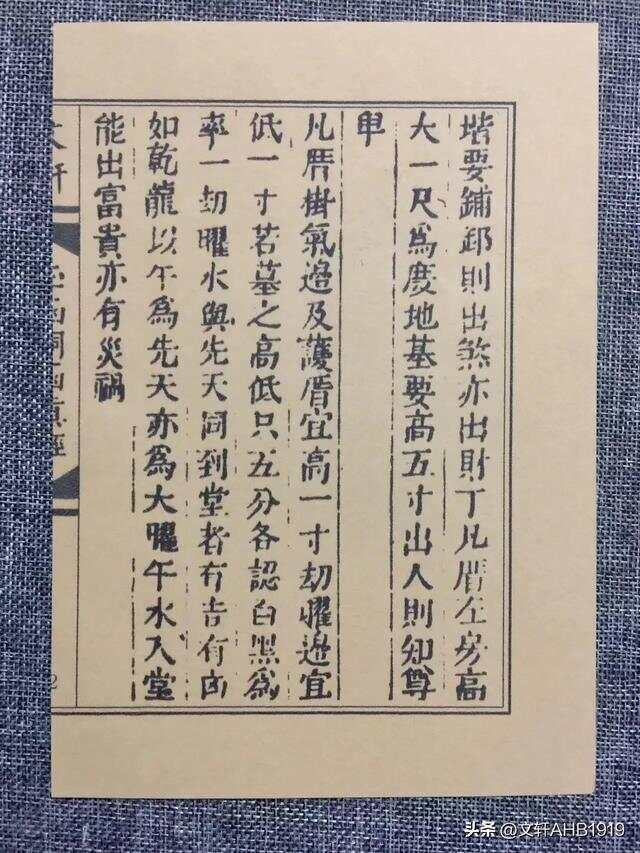 堦要鋪卸則出煞亦出財丁凡厝左房高
大一尺爲度地基要高五寸出人則知尊
卑
凡厝掛氣邉及護厝宜高一寸劫曜邉宜
低一寸若墓之高低只五分各認白黑爲
率一劫曜水與先天同到堂者有吉有凶
如乾龍以午爲先天亦爲大曜午水入堂
能出富貴亦有災禍
頭条 @文轩AHB1919